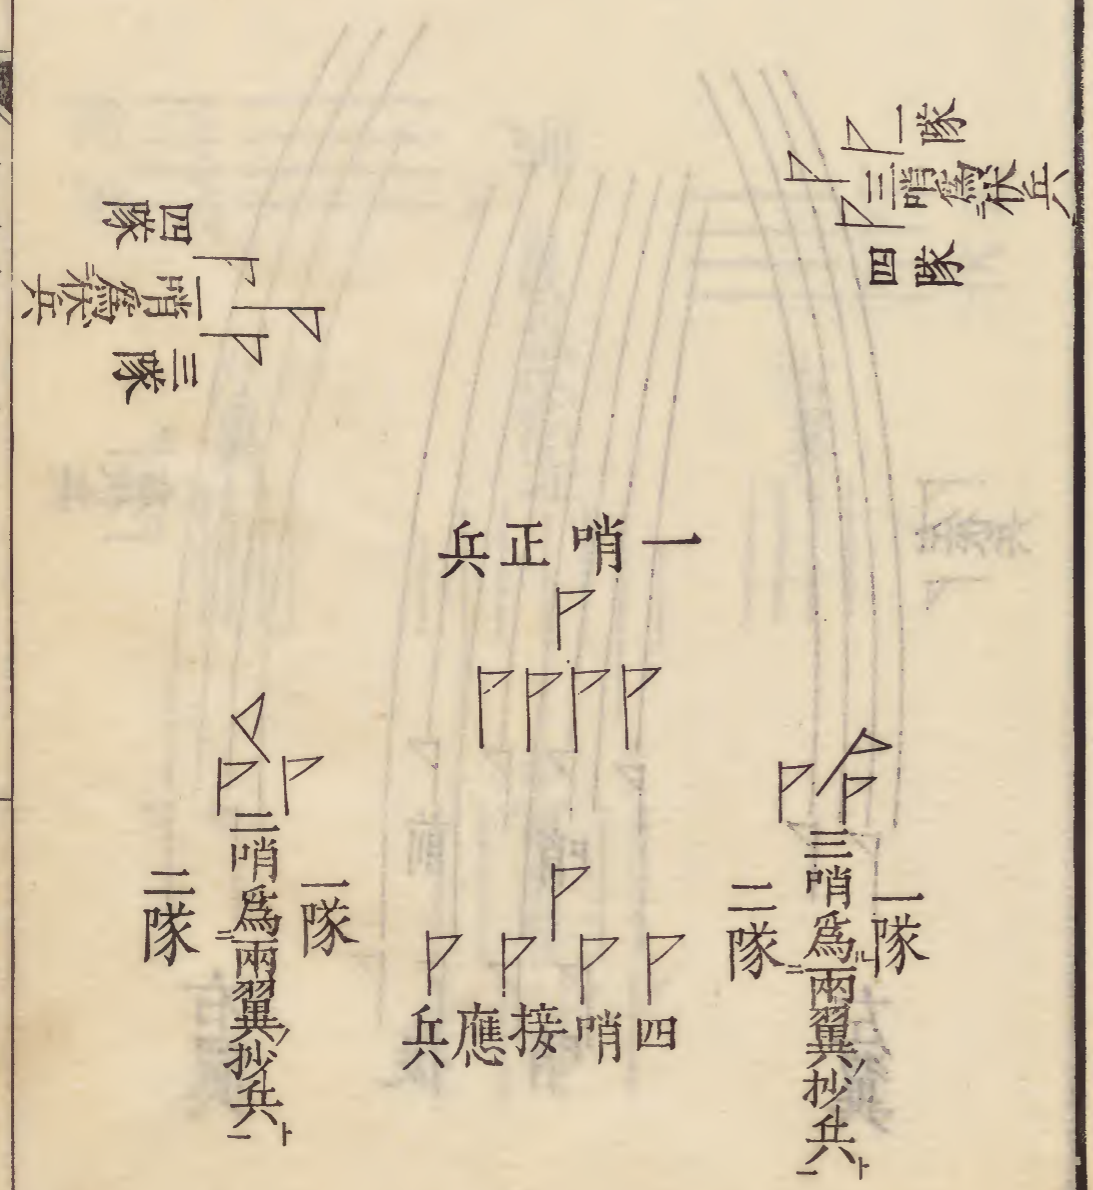 一隊
三哨爲㆓伏兵
四隊
四隊
一哨爲㆓伏兵
三隊
一哨正兵
一隊
三哨爲㆓兩翼ノ抄兵ト㆒
二隊
四哨接應兵
一隊
二哨爲㆓兩翼ノ抄兵ト㆒
二隊